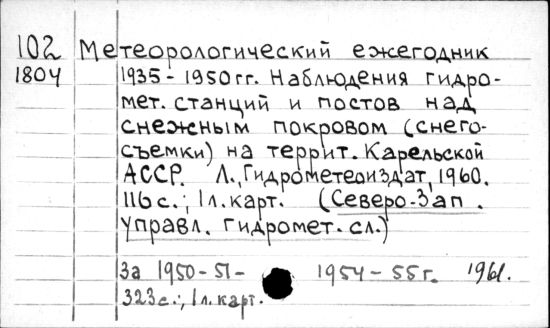 102 Метеорологический ежегодник
1804 1935-1950гг. Наблюдения гидро-
мет. станций и постов над
снежным покровом (снего-
съемки) на террит. Карельской
АССР. Л., Гидрометеоиздат, 1960.
116 с.; 1 л. карт. (Северо-Зап.
управл. гидромет. сл.)
За 1950-51- 1954-55г. 1961.
323 с.; 1 л. карт.